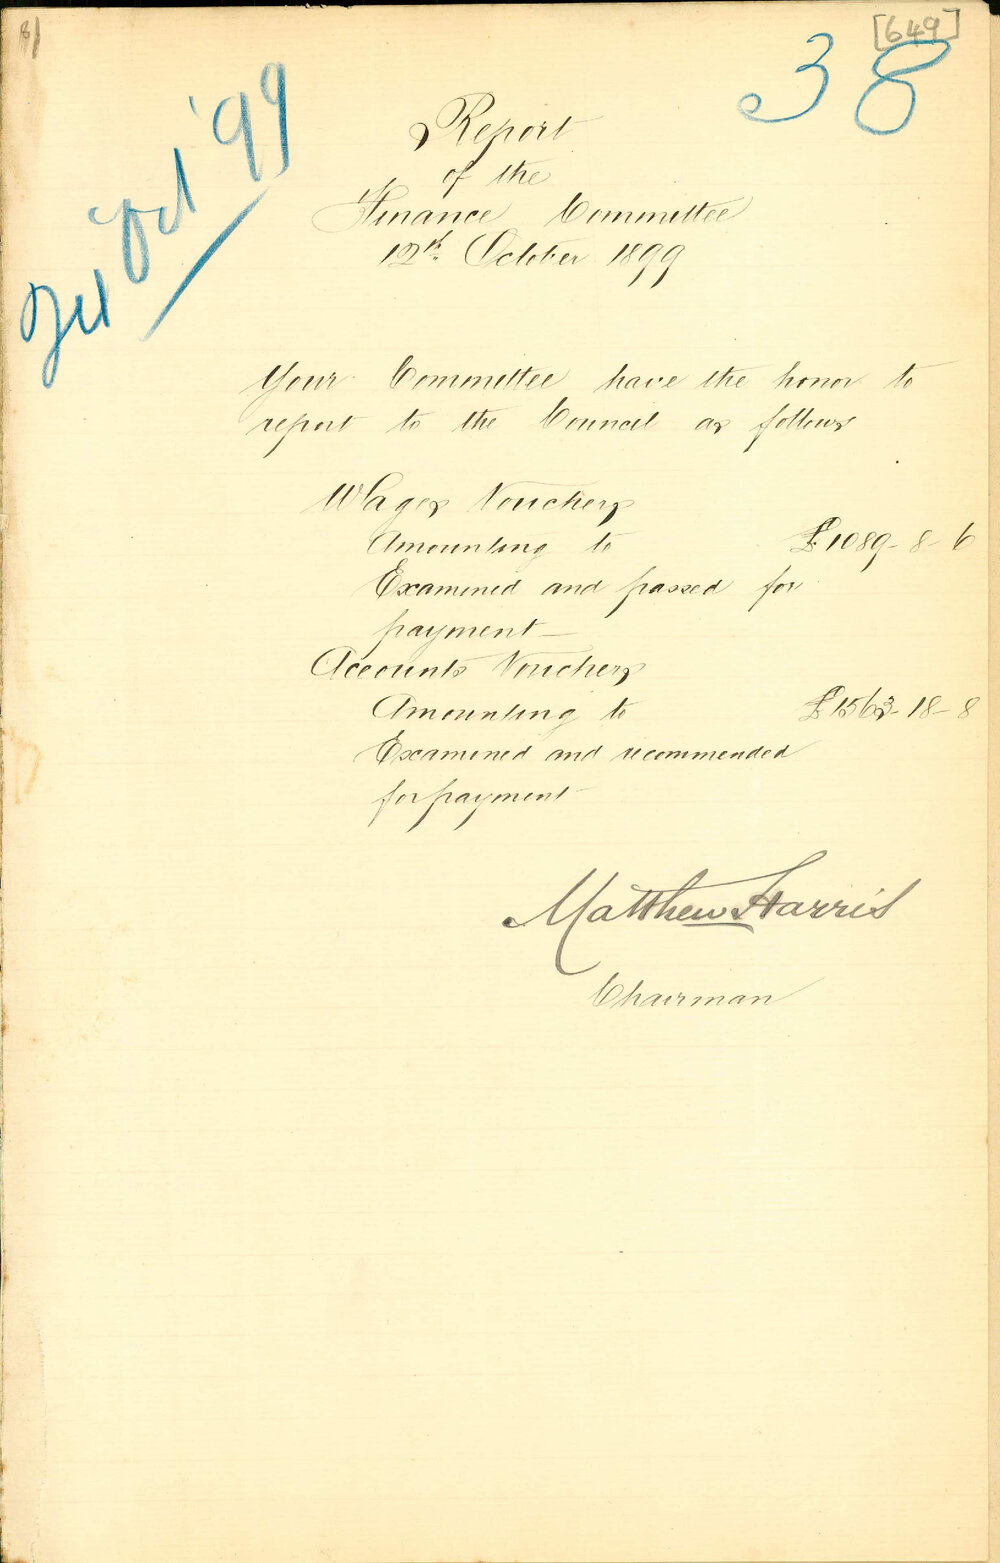 [649]
38
Oct '99
Report
of the
Finance Committee
12th October 1899
Your Committee have the honor to
report to the Council as follows
Wages Vouchers
Amounting to £1089-8-6
Examined and passed for
payment—
Accounts Vouchers
Amounting to £1563-18-8
Examined and recommended
for payment
Matthew Harris
Chairman